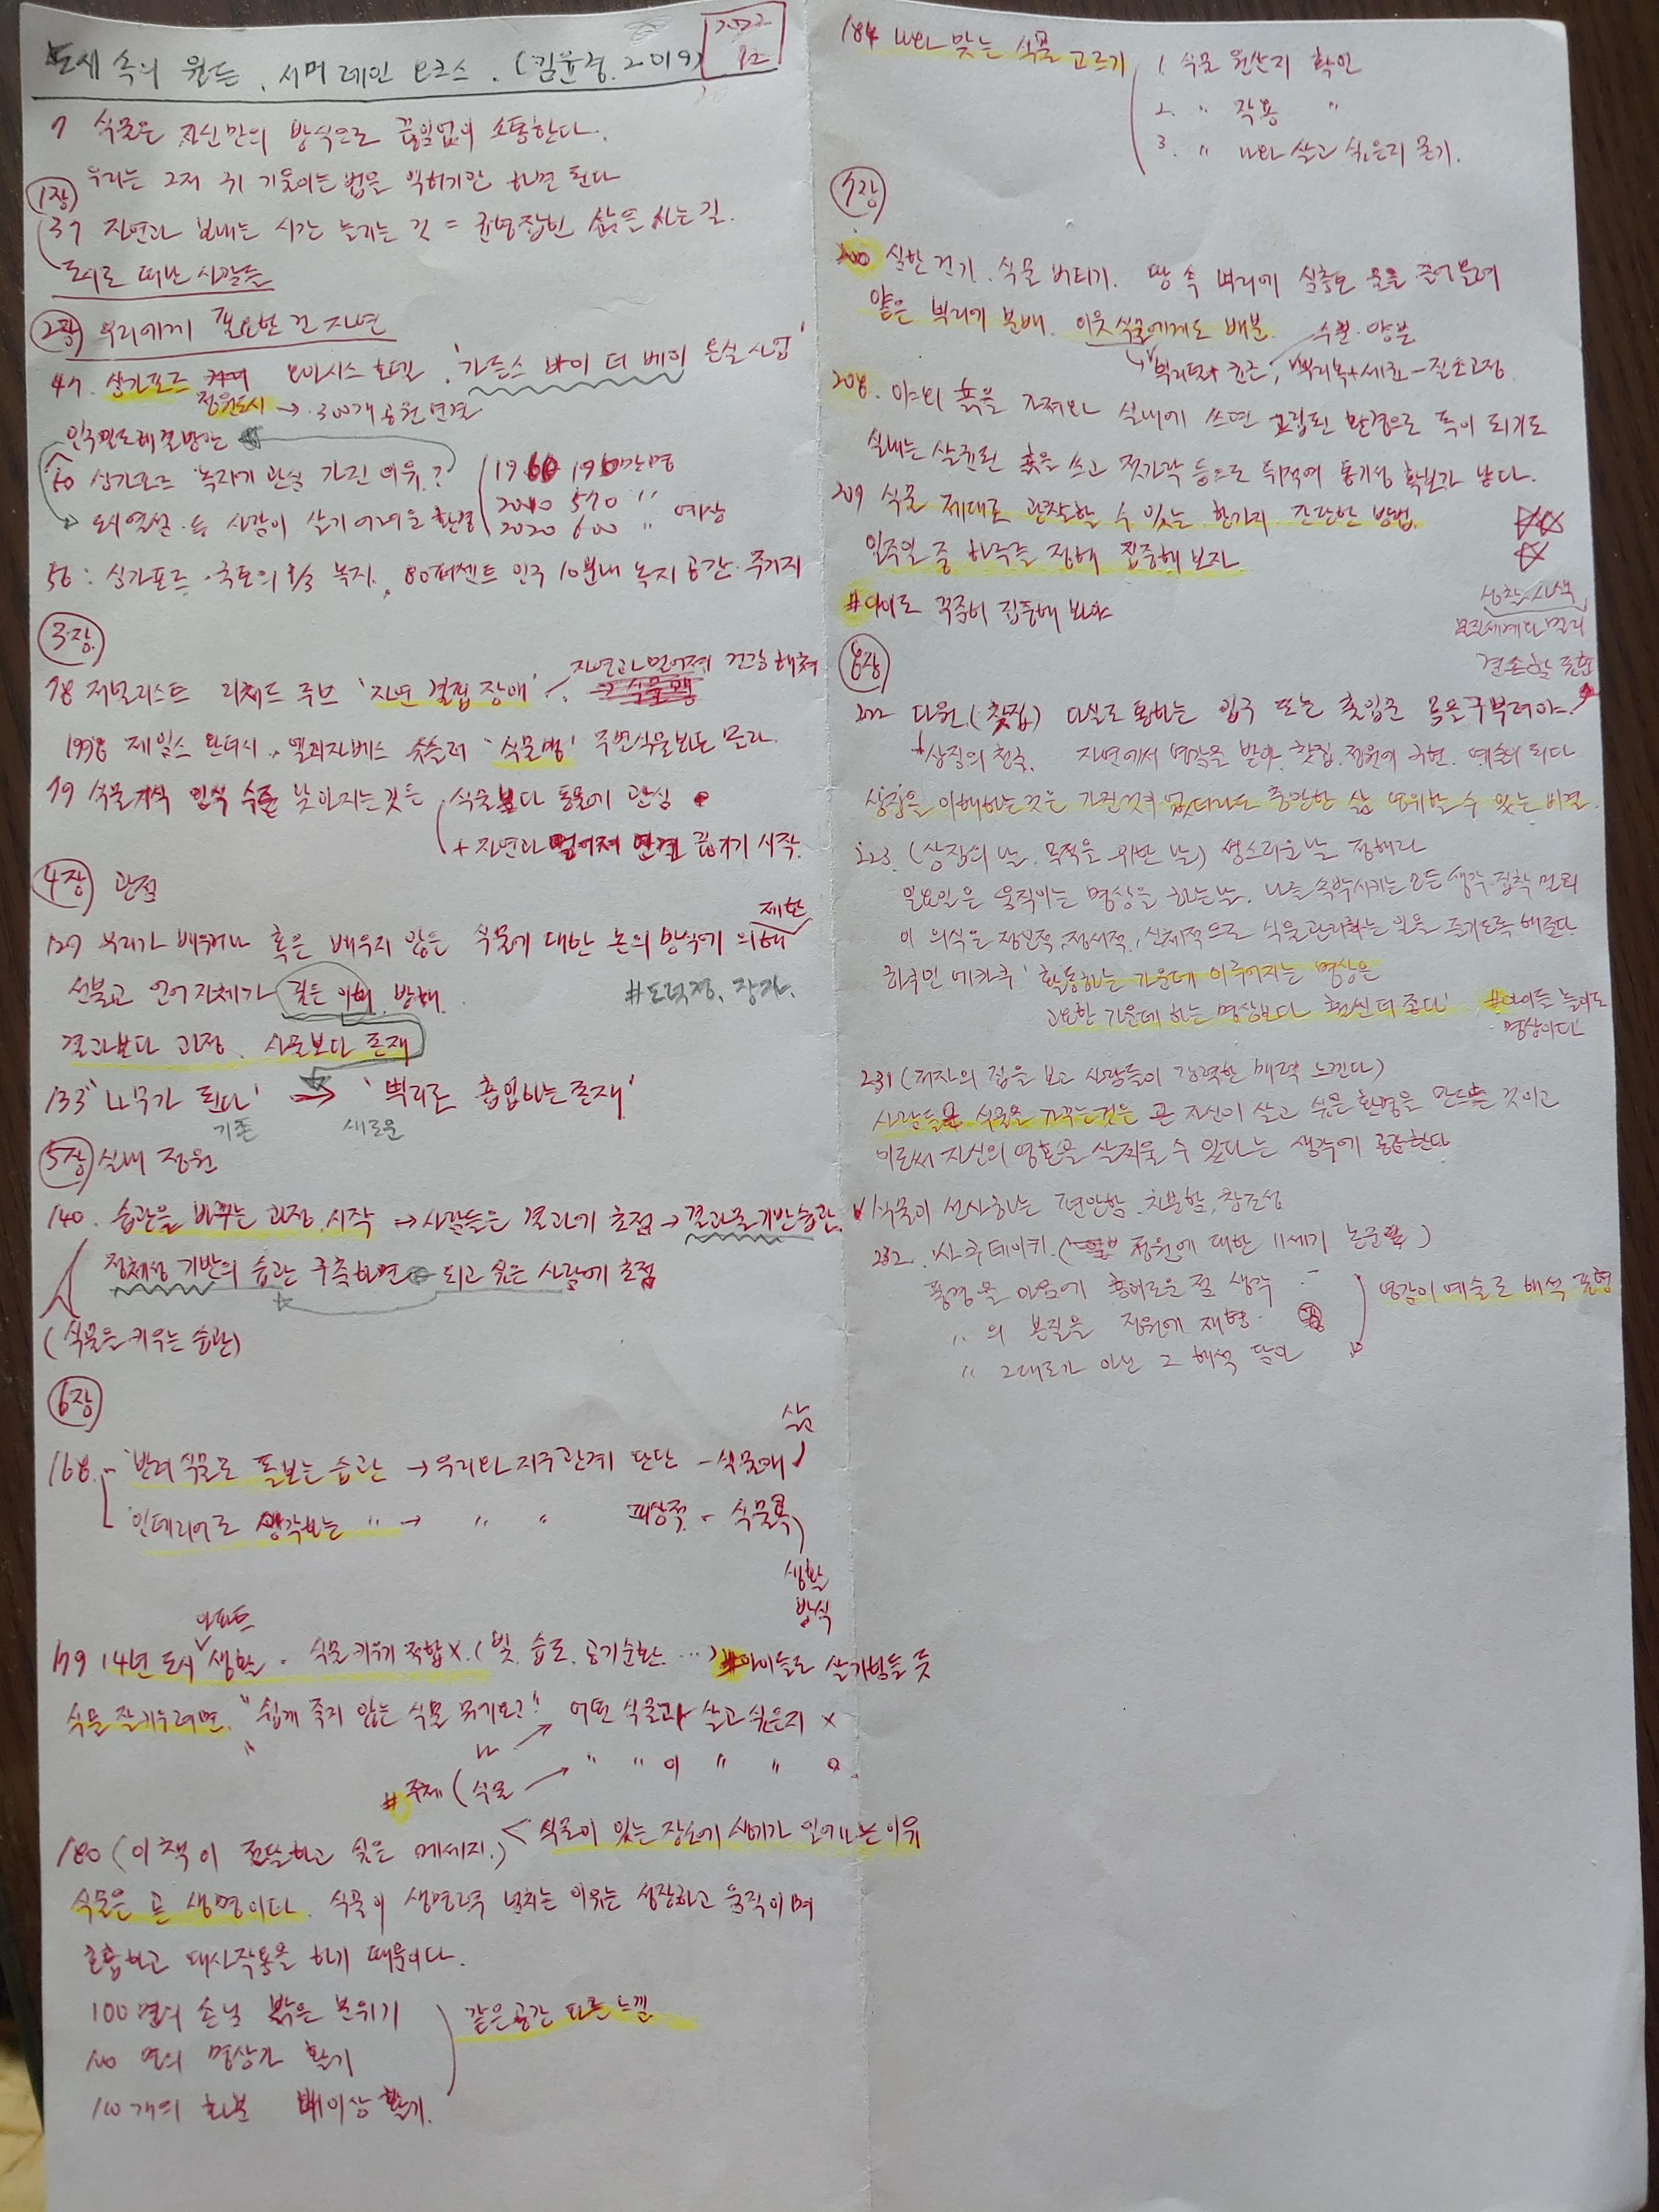 도시 속의 월든, 서머 레인 오크스. (김윤경, 2019)
2022
12
7 식물은 자신만의 방식으로 끊임없이 소통한다.
우리는 그저 귀 기울이는 법을 익히기만 하면 된다
1장
37 자연과 보내는 시간 늘리는 것 = 균형잡힌 삶을 사는 길.
도시로 떠난 사람들
2장 우리에게 필요한 건 자연
47. 싱가포르 오아시스 호텔, '가든스 바이 더 베이 온실사업'
정원도시 → 300개 공원 연결
인구밀도해결방안
50 싱가포르 녹지에 관심 가진 이유?
1960 190만명
2010 570 〃
2020 600 〃 예상
도시열섬 등 사람이 살기 어려운 환경
56 : 싱가포르 국토의 1/3 녹지, 80퍼센트 인구 10분내 녹지 공간 주거지
3장
자연과 멀어져 건강 해쳐
78 저널리스트 리처드 루브 '자연 결핍 장애'
→ 식물맹
1998 제임스 완더시, 엘리자베스 슈슬러 '식물맹' 주변식물봐도 몰라.
79 식물지식 인식 수준 낮아지는것은 식물보다 동물에 관심
+ 자연과 멀어져 연결 끊기기 시작.
4장 관점
제한
127 우리가 배우거나 혹은 배우지 않은 식물에 대한 논의 방식에 의해
선불교 언어자체가 깊은 이해 방해.
#도덕경, 장자.
결과보다 과정, 사물보다 존재
133 '나무가 된다' → '뿌리로 흡입하는 존재'
기존 새로운
5장 실내 정원
140. 습관을 바꾸는 과정, 시작 → 사람들은 결과에 초점 → 결과물기반습관.
정체성 기반의 습관 구축하면 되고 싶은 사람에 초점
(식물을 키우는 습관)
6장
삶
168. 반려식물로 돌보는 습관 → 우리와 지구관계 단단 - 식물애
인테리어로 생각하는 〃 → 〃 〃 피상적 - 식물
생활
방식
아파트
179 14년 도시 생활 - 식물키우기 적합 X. (빛, 습도, 공기순환 …) #아이들도 살기힘들 듯
식물 잘키우려면. "쉽게 죽지 않는 식물 뭐예요?"
나 → 어떤 식물과 살고 싶은지 X
#주제 ( 식물 → 〃 〃이 〃 〃 O
180 (이 책이 전달하고 싶은 메세지.) < 식물이 있는 장소에 생기가 일어나는 이유
식물은 곧 생명이다. 식물이 생명력 넘치는 이유는 성장하고 움직이며
호흡하고 대사작용을 하기 때문이다.
100명의 손님 밝은 분위기
100 명의 명상가 활기
100개의 화분 배이상 활기.
같은공간 다른 느낌
184 나와 맞는 식물 고르기
1. 식물 원산지 확인
2. 〃 작용 〃
3. 〃 나와 살고 싶은지 묻기.
7장
200 심한 건기, 식물 버티기. 땅 속 뿌리에 심층토 물을 끌어올려
얕은 뿌리에 분배. 이웃식물에게도 배분. 수분·양분
뿌리털+균근, 뿌리혹+세균-질소고정.
208. 야외 흙을 가져와 실내에 쓰면 고립된 환경으로 독이 되기도
실내는 살균된 흙을 쓰고 젓가락 등으로 뒤적여 통기성 확보가 낫다.
209 식물 제대로 관찰할 수 있는 한가지 간단한 방법.
일주일 중 하루를 정해 집중해 보자
#아이로 꾸준히 집중해 보자
성찰, 사색
물질세계와 멀리
8장
겸손함 표현
222 다원 (찻집) 다실로 통하는 입구 또는 출입문 몸을구부려야
상징의 천국. 자연에서 영감을 받아 찻집, 정원에 구현. 예술이 되다
상징을 이해하는 것은 가진것이 없더라도 충만한 삶 영위할 수 있는 비결.
223. (상징의 날, 목적을 위한 날) 성스러운날 정해라
일요일은 움직이는 명상을 하는날, 나를 속박시키는 모든 생각·집착 멀리
이 의식은 정신적, 정서적, 신체적으로 식물관리하는 일을 즐기도록 해준다
하쿠인 에카쿠 '활동하는 가운데 이루어지는 명상은
고요한 가운데 하는 명상보다 훨씬 더 좋다' #아이들 놀이도
명상이다
231 (저자의 집을 보고 사람들이 강력한 매력 느낀다)
사람들은 식물을 가꾸는것은 곧 자신이 살고 싶은 환경을 만드는 것이고
이로써 자신의 영혼을 살찌울 수 있다는 생각에 공감한다
식물이 선사하는 편안함, 차분함, 창조성
232. 사쿠테이키 (정원에 대한 11세기 논문)
풍경을 마음에 흥미로운 점 생각
〃의 본질을 정원에 재현.
〃 그대로가 아닌 그 해석 담아
영감이 예술로 해석 표현